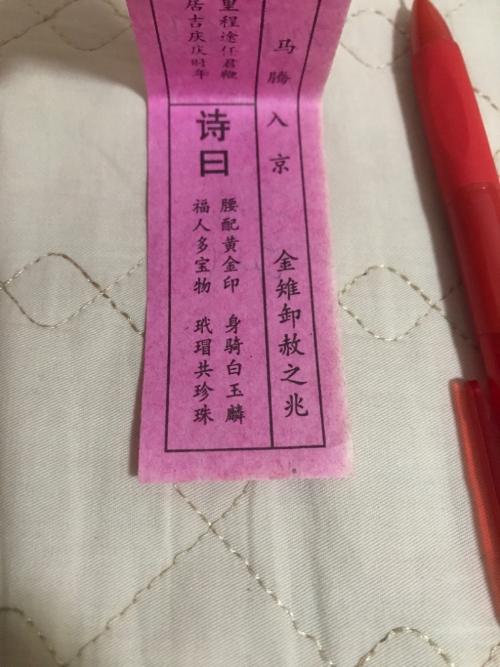 马腾入京 金雉卸赦之兆
里程途任君鞭
居吉庆庆时年
诗曰
腰配黄金印 身骑白玉麟
福人多宝物 玳瑁共珍珠